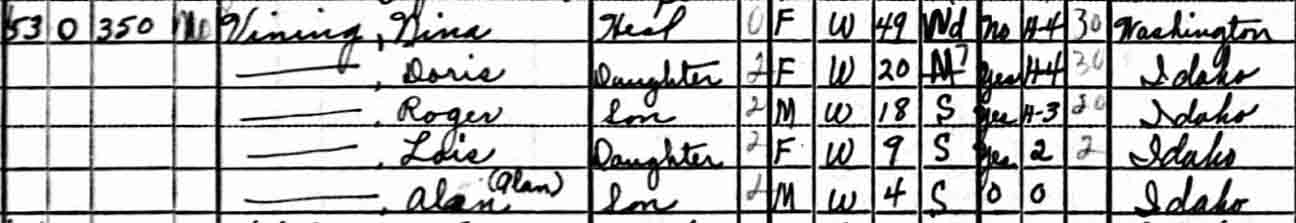 53 0 350 No Vining, Nina Head 0 F W 49 Wd No H-4 30 Washington
——, Doris Daughter 2 F W 20 M 7 Yes H-4 30 Idaho
——, Roger Son 2 M W 18 S Yes H-3 20 Idaho
——, Lois Daughter 2 F W 9 S Yes 2 2 Idaho
——, Alan (Alan) Son 2 M W 4 S 0 0 Idaho